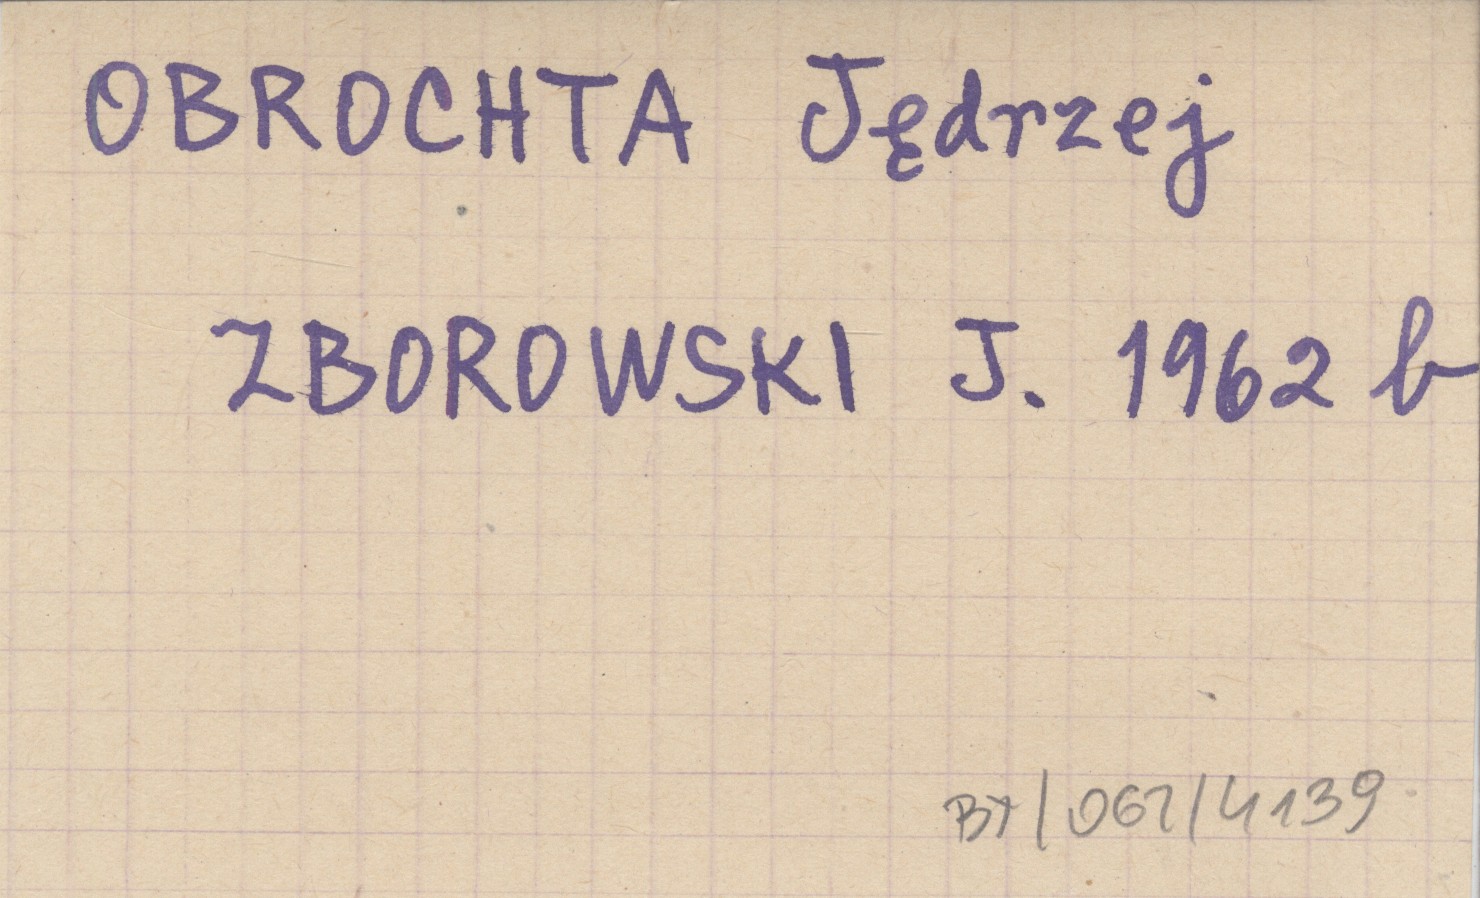 OBROCHTA Jędrzej
ZBOROWSKI J. 1962 b
BX/067/4139